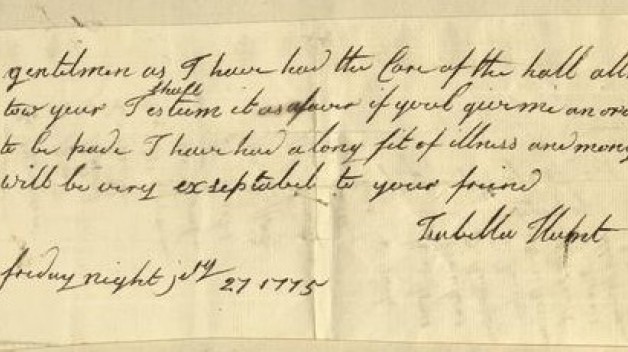 gentilmen as I have had the Care of the hall
shall
tow year I Estum it as a faver if youl give me an
to be pade I have had a long fit of illness and mony
will be very exseptabel to your friend
Isabella
friday night 27 1775